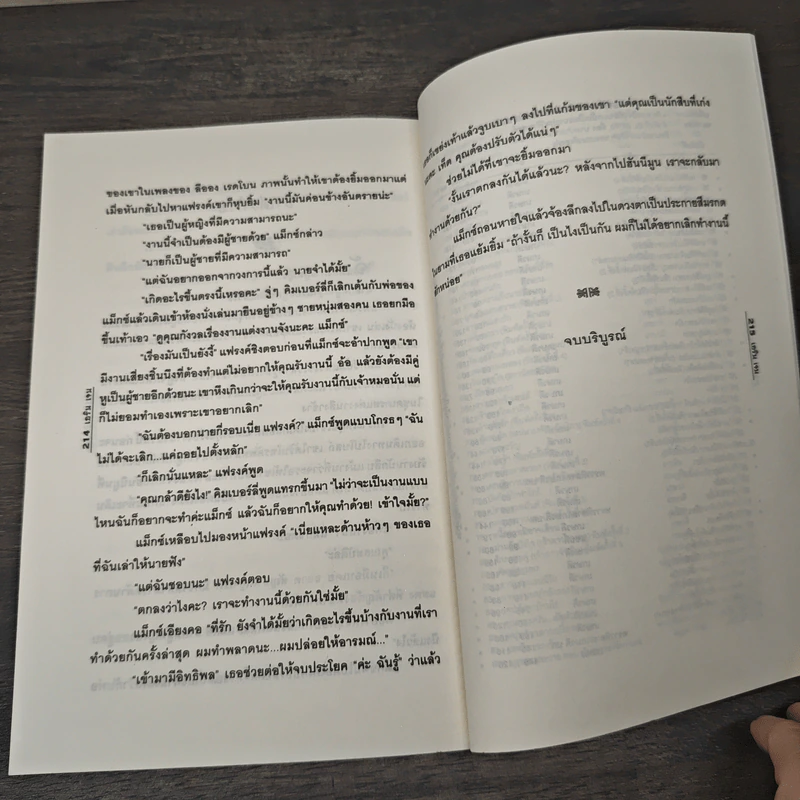 ของเขาในเพลงของ ลีออง เรดโบน ภาพนั้นทำให้เขาต้องยิ้มออกมาแต่
เมื่อหันกลับไปหาแฟรงค์เขาก็หุบยิ้ม "งานนี้มันค่อนข้างอันตรายน่ะ"
"เธอเป็นผู้หญิงที่มีความสามารถนะ"
"งานนี้จำเป็นต้องมีผู้ชายด้วย" แม็กซ์กล่าว
"นายก็เป็นผู้ชายที่มีความสามารถ"
"แต่ฉันอยากออกจากวงการนี้แล้ว นายจำได้มั้ย"
"เกิดอะไรขึ้นตรงนี้เหรอคะ" จู่ๆ คิมเบอร์ลี่ก็เลิกเต้นกับพ่อของ
แม็กซ์แล้วเดินเข้าห้องนั่งเล่นมายืนอยู่ข้างๆ ชายหนุ่มสองคน เธอยกมือ
ขึ้นเท้าเอว "ดูคุณกังวลเรื่องงานแต่งงานจังนะคะ แม็กซ์"
"เรื่องมันเป็นยังงี้" แฟรงค์ชิงตอบก่อนที่แม็กซ์จะอ้าปากพูด "เขา
มีงานเสี่ยงชิ้นนึงที่ต้องทำแต่ไม่อยากให้คุณรับงานนี้ อ้อ แล้วยังต้องมีคู่
หูเป็นผู้ชายอีกด้วยนะ เขาหึงเกินกว่าจะให้คุณรับงานนี้กับเจ้าหมอนั่น แต่
ก็ไม่ยอมทำเองเพราะเขาอยากเลิก"
"ฉันต้องบอกนายกี่รอบเนี่ย แฟรงค์?" แม็กซ์พูดแบบโกรธๆ "ฉัน
ไม่ได้จะเลิก...แค่ถอยไปตั้งหลัก"
"ก็เลิกนั่นแหละ" แฟรงค์พูด
"คุณกล้าดียังไง!" คิมเบอร์ลี่พูดแทรกขึ้นมา "ไม่ว่าจะเป็นงานแบบ
ไหนฉันก็อยากจะทำค่ะแม็กซ์ แล้วฉันก็อยากให้คุณทำด้วย! เข้าใจมั้ย?"
แม็กซ์เหลือบไปมองหน้าแฟรงค์ "เนี่ยแหละด้านห้าวๆ ของเธอ
ที่ฉันเล่าให้นายฟัง"
"แต่ฉันชอบนะ" แฟรงค์ตอบ
"ตกลงว่าไงคะ? เราจะทำงานนี้ด้วยกันใช่มั้ย"
แม็กซ์เอียงคอ "ที่รัก ยังจำได้มั้ยว่าเกิดอะไรขึ้นบ้างกับงานที่เรา
ทำด้วยกันครั้งล่าสุด ผมทำพลาดนะ...ผมปล่อยให้อารมณ์..."
"เข้ามามีอิทธิพล" เธอช่วยต่อให้จบประโยค "ค่ะ ฉันรู้" ว่าแล้ว
214 เฮรัน เจน
เขย่งเท้าแล้วจูบเบาๆ ลงไปที่แก้มของเขา "แต่คุณเป็นนักสืบที่เก่ง
เท็ด คุณต้องปรับตัวได้แน่ๆ"
ช่วยไม่ได้ที่เขาจะยิ้มออกมา
"งั้นเราตกลงกันได้แล้วนะ? หลังจากไปฮันนีมูน เราจะกลับมา
ทำงานด้วยกัน?"
แม็กซ์ถอนหายใจแล้วจ้องลึกลงไปในดวงตาเป็นประกายสีมรกต
ในยามที่เธอแย้มยิ้ม "ถ้างั้นก็ เป็นไงเป็นกัน ผมก็ไม่ได้อยากเลิกทำงานนี้
สักหน่อย"
จบบริบูรณ์
215